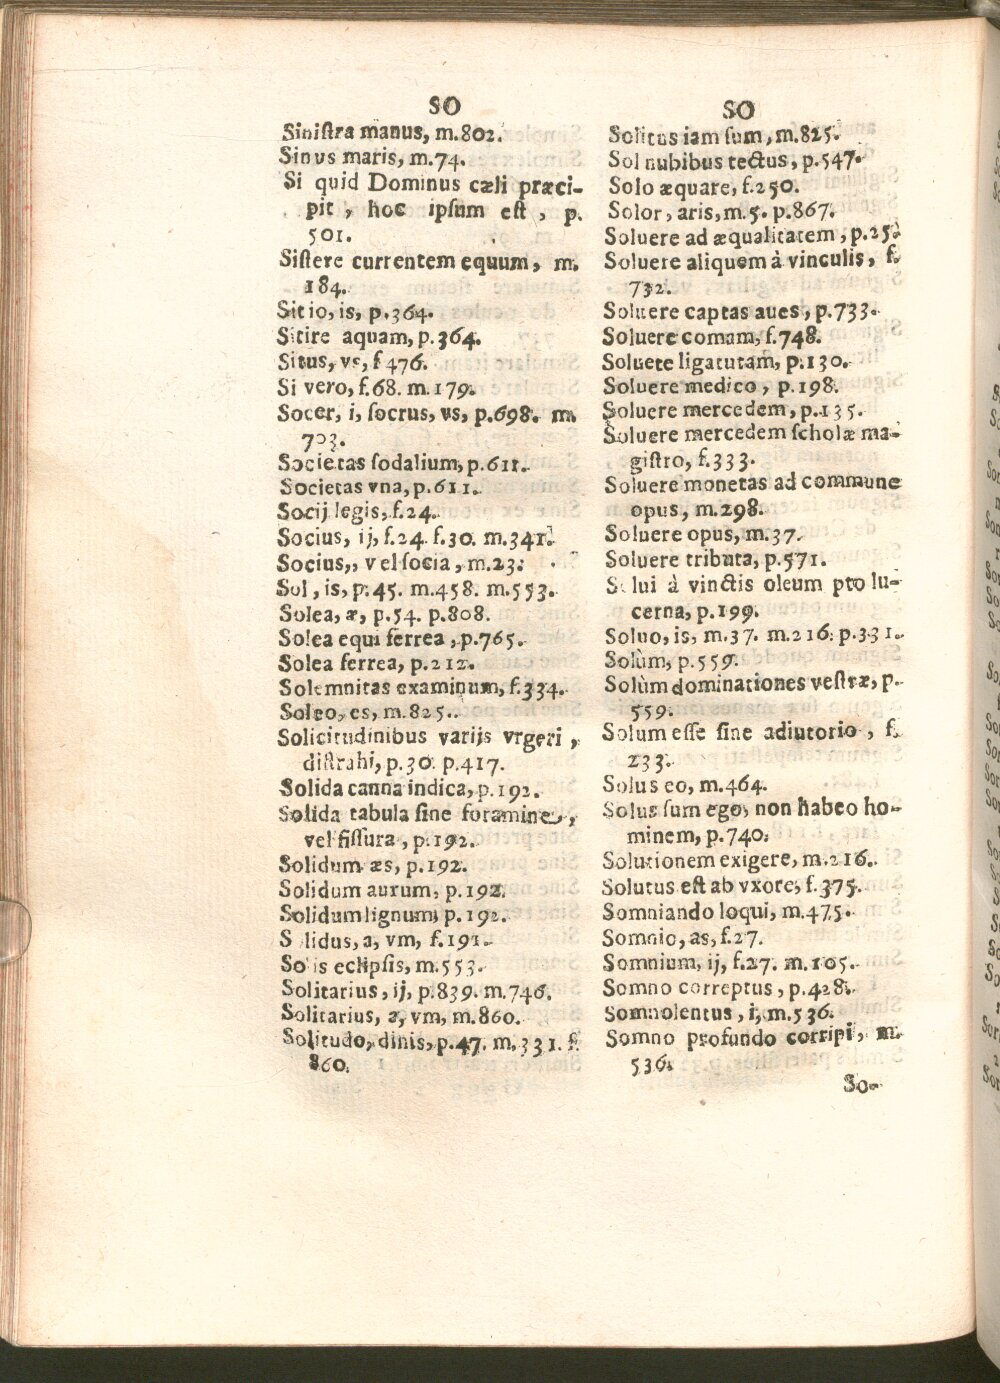 SO
Siniſtra manus, m.802.
Sinus maris, m.74.
Si quid Dominus cæli præci-
pit, hoc ipſum eſt, p.
501.
Siſtere currentem equum, m.
184.
Sitio, is, p.364.
Sitire aquam, p.364.
Situs, vs, f 476.
Si vero, f.68. m.179.
Socer, i, ſocrus, vs, p.698. m.
703.
Societas ſodalium, p.611.
Societas vna, p.611.
Socij legis, f.24.
Socius, ij, f.24. f.30. m.341.
Socius,, vel ſocia, m.23.
Sol, is, p.45. m.458. m.553.
Solea, æ, p.54. p.808.
Solea equi ferrea, p.765.
Solea ferrea, p.212.
Solemnitas examinum, f.334.
Soleo, es, m.825.
Solicitudinibus varijs vrgeri,
diſtrahi, p.30. p.417.
Solida canna indica, p.192.
Solida tabula ſine foramine,
vel fiſſura, p.192.
Solidum æs, p.192.
Solidum aurum, p.192.
Solidum lignum, p.192.
S lidus, a, vm, f.191.
So is eclipſis, m.553.
Solitarius, ij, p.839. m.746.
Solitarius, a, vm, m.860.
Solitudo, dinis, p.47. m.331. f.
860.
SO
Solitus iam ſum, m.825.
Sol nubibus tectus, p.547.
Solo æquare, f.250.
Solor, aris, m.5. p.867.
Soluere ad æqualitatem, p.25.
Soluere aliquem à vinculis, f.
732.
Soluere captas aues, p.733.
Soluere comam, f.748.
Soluere ligaturam, p.130.
Soluere medico, p.198.
Soluere mercedem, p.135.
Soluere mercedem ſcholæ ma-
giſtro, f.333.
Soluere monetas ad commune
opus, m.298.
Soluere opus, m.37.
Soluere tributa, p.571.
S lui à vinctis oleum pro lu-
cerna, p.199.
Soluo, is, m.37. m.216. p.331.
Solùm, p.559.
Solùm dominationes veſtræ, p.
559.
Solum eſſe ſine adiutorio, f.
233.
Solus eo, m.464.
Solus ſum ego, non habeo ho-
minem, p.740.
Solutionem exigere, m.216.
Solutus eſt ab vxore, f.375.
Somniando loqui, m.475.
Somnio, as, f.27.
Somnium, ij, f.27. m.105.
Somno correptus, p.428.
Somnolentus, i, m.536.
Somno profundo corripi, m.
536.
So-